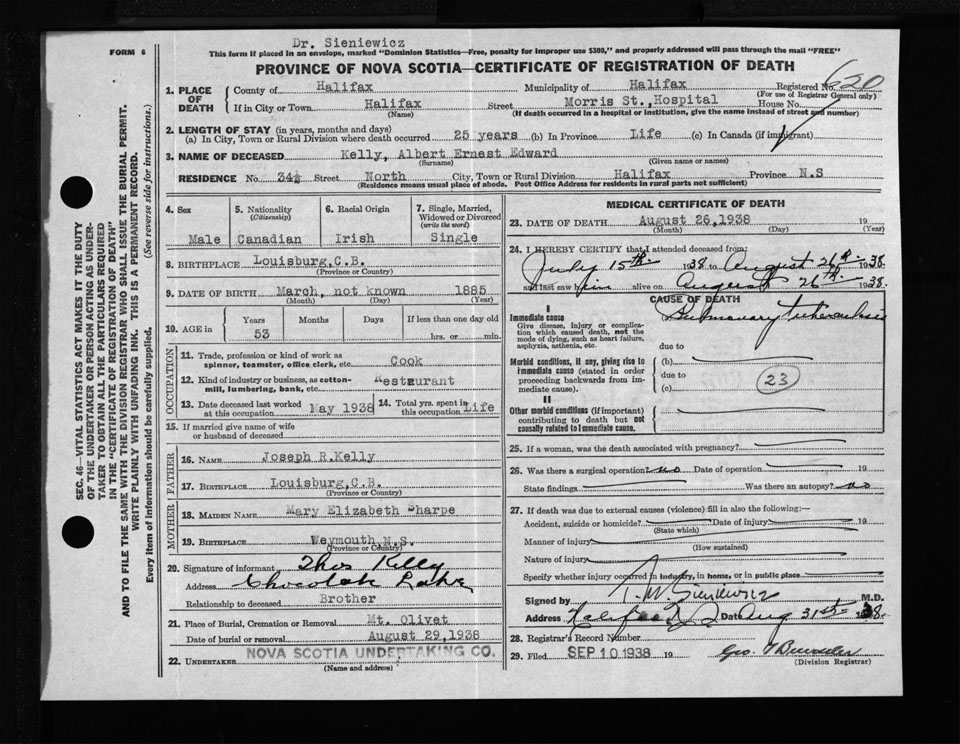 Dr. Sieniewicz
FORM 6
This form if placed in an envelope, marked "Dominion Statistics—Free, penalty for improper use $300," and properly addressed will pass through the mail "FREE"
PROVINCE OF NOVA SCOTIA—CERTIFICATE OF REGISTRATION OF DEATH
1. PLACE OF DEATH
County of Halifax Municipality of Halifax Registered No. 620
(For use of Registrar General only)
If in City or Town Halifax Street Morris St., Hospital House No.
(Name) (If death occurred in a hospital or institution, give its name instead of street and number)
2. LENGTH OF STAY (in years, months and days)
(a) In City, Town or Rural Division where death occurred 25 years (b) In Province Life (c) In Canada (if immigrant)
3. NAME OF DECEASED Kelly, Albert Ernest Edward
(Surname) (Given name or names)
RESIDENCE No. 34½ Street North City, Town or Rural Division Halifax Province N.S
(Residence means usual place of abode. Post Office Address for residents in rural parts not sufficient)
4. Sex Male
5. Nationality (Citizenship) Canadian
6. Racial Origin Irish
7. Single, Married, Widowed or Divorced (write the word) Single
8. BIRTHPLACE Louisburg, C.B.
(Province or Country)
9. DATE OF BIRTH March, not known 1885
(Month) (Day) (Year)
10. AGE in Years Months Days If less than one day old
53 hrs. or min.
OCCUPATION
11. Trade, profession or kind of work as spinner, teamster, office clerk, etc. Cook
12. Kind of industry or business, as cotton-mill, lumbering, bank, etc. Restaurant
13. Date deceased last worked at this occupation May 1938
14. Total yrs. spent in this occupation Life
15. If married give name of wife or husband of deceased
FATHER
16. NAME Joseph R. Kelly
17. BIRTHPLACE Louisburg, C.B.
(Province or Country)
MOTHER
18. MAIDEN NAME Mary Elizabeth Sharpe
19. BIRTHPLACE Weymouth, N.S.
(Province or Country)
20. Signature of informant Thos Kelly
Address Chocolate Lake
Relationship to deceased Brother
21. Place of Burial, Cremation or Removal Mt. Olivet
Date of burial or removal August 29, 1938
22. UNDERTAKER NOVA SCOTIA UNDERTAKING CO.
(Name and address)
MEDICAL CERTIFICATE OF DEATH
23. DATE OF DEATH August 26, 1938 19
(Month) (Day) (Year)
24. I HEREBY CERTIFY that I attended deceased from:
July 15th 1938 to August 26th 1938
and last saw him alive on August 26th 1938.
CAUSE OF DEATH
I
Immediate cause Pulmonary tuberculosis
Give disease, injury or complication which caused death, not the mode of dying, such as heart failure, asphyxia, asthenia, etc.
due to
Morbid conditions, if any, giving rise to immediate cause (stated in order proceeding backwards from immediate cause).
(b)
due to
(c)
23
II
Other morbid conditions (if important) contributing to death but not causally related to immediate cause.
25. If a woman, was the death associated with pregnancy?
26. Was there a surgical operation? no Date of operation 19
State findings Was there an autopsy? no
27. If death was due to external causes (violence) fill in also the following:—
Accident, suicide or homicide? Date of injury 19
(State which)
Manner of injury
(How sustained)
Nature of injury
Specify whether injury occurred in industry, in home, or in public place
Signed by T. M. Sieniewicz M.D.
Address Halifax Date Aug 31st 1938.
28. Registrar's Record Number
29. Filed SEP 10 1938 19
(Division Registrar)
SEC. 46—VITAL STATISTICS ACT MAKES IT THE DUTY
OF THE UNDERTAKER OR PERSON ACTING AS UNDER-
TAKER TO OBTAIN ALL THE PARTICULARS REQUIRED
IN THE "CERTIFICATE OF REGISTRATION OF DEATH"
AND TO FILE THE SAME WITH THE DIVISION REGISTRAR WHO SHALL ISSUE THE BURIAL PERMIT.
WRITE PLAINLY WITH UNFADING INK. THIS IS A PERMANENT RECORD.
Every item of information should be carefully supplied. (See reverse side for instructions.)